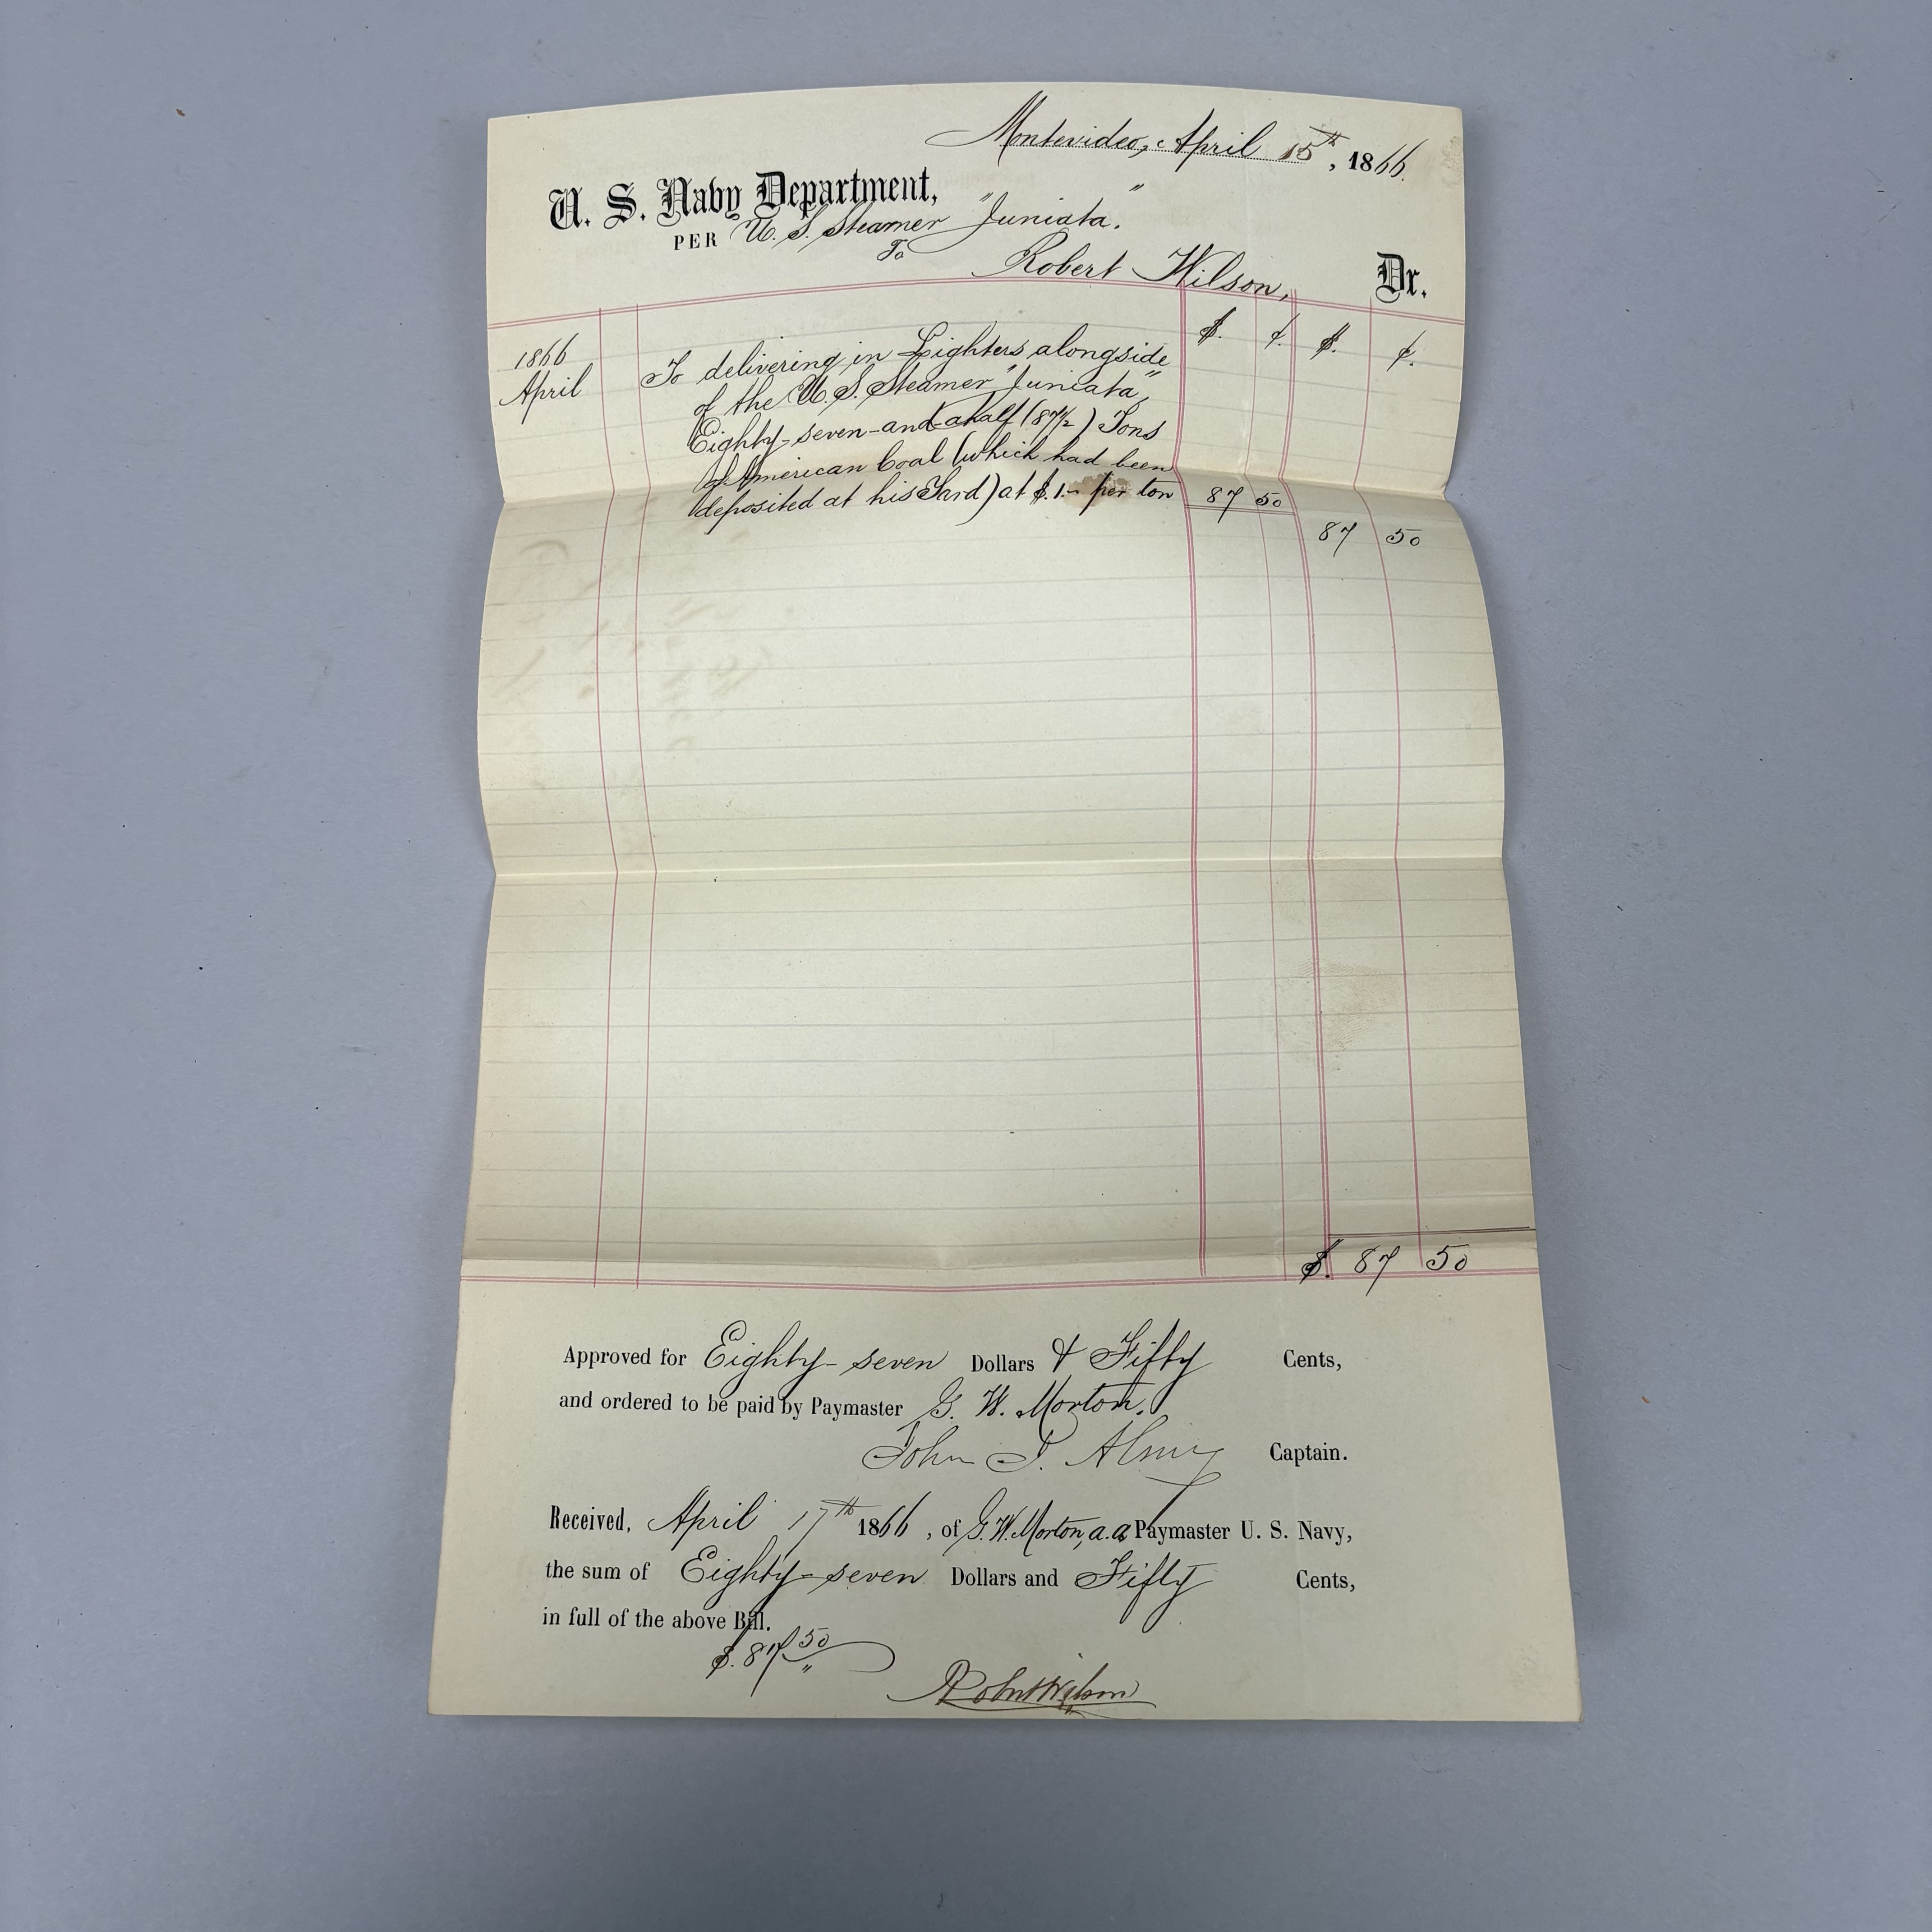 Montevideo, April 15th, 1866.
U. S. Navy Department,
PER U. S. Steamer "Juniata."
To
Robert Wilson, Dr.
$. ¢. $. ¢.
1866
April
To delivering in Lighters alongside
of the U. S. Steamer "Juniata",
Eighty-seven-and-a half (87 1/2) Tons
of American Coal (which had been
deposited at his Yard) at $.1.- per ton 87 50
87 50
$. 87 50
Approved for Eighty-seven Dollars & Fifty Cents,
and ordered to be paid by Paymaster G. W. Morton.
John J. Almy Captain.
Received, April 17th 1866, of G. W. Morton, a. a. Paymaster U. S. Navy,
the sum of Eighty-seven Dollars and Fifty Cents,
in full of the above Bill.
$. 87 50
Robert Wilson